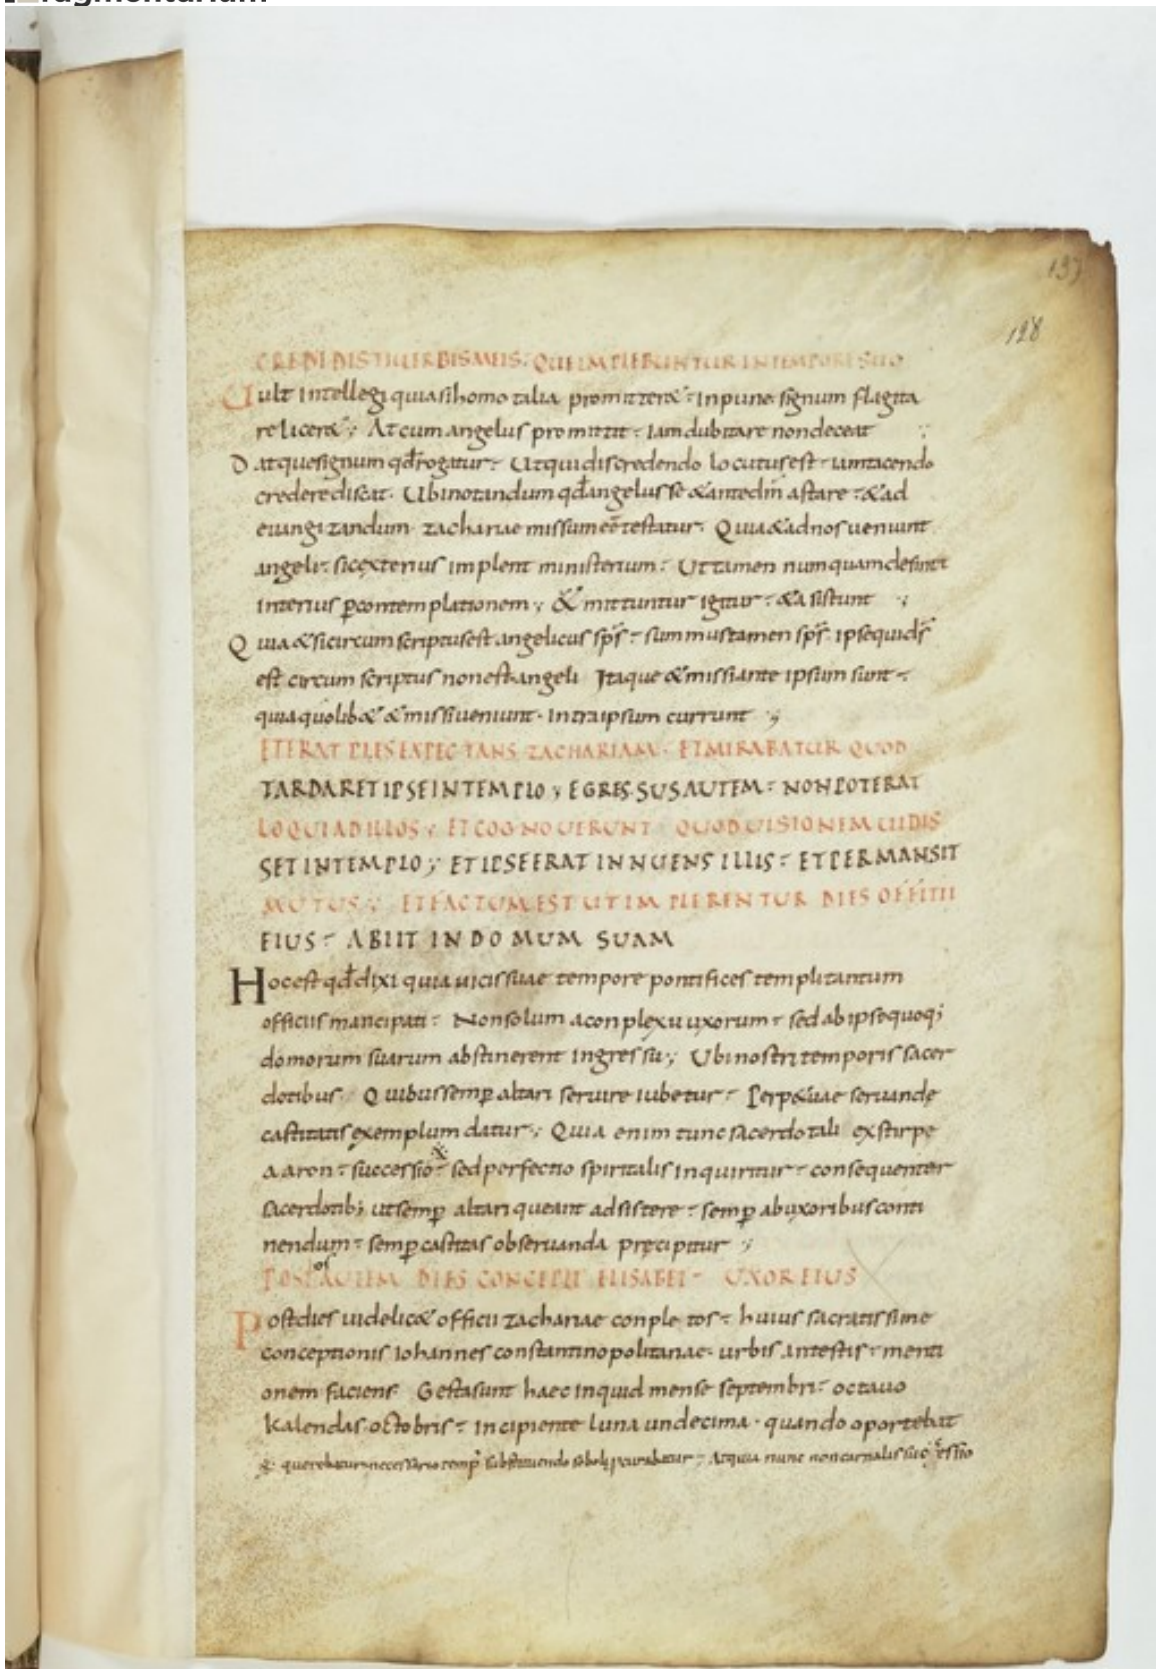 137
128
CREDIDISTI UERBIS MEIS. QUE IMPLEBUNTUR IN TEMPORE SUO
Uult intellegi quia si homo talia promitter& inpune signum flagita
re licer& At cum angelus promittit iam dubitare non deceat
Datque signum qđ rogatur Ut qui discredendo locutus est iam tacendo
credere discat. Ubi notandum qđ angelus se & ante dm̄ astare & ad
euangizandum zachariae missum eē testatur. Quia & ad nos ueniunt
angeli sic exterius implent ministerium Ut tamen numquam desint
interius ꝑ contemplationem & mittuntur igitur & asistunt
Quia & si circumscriptus est angelicus sp̄s summus tamen sp̄s ipse qui d̄s
est circumscriptus non est angeli Itaque & missi ante ipsum sunt
quia quolib& & missi ueniunt intra ipsum currunt
ET ERAT PLEBS EXPECTANS ZACHARIAM. ET MIRABATUR QUOD
TARDARET IPSE IN TEMPLO EGRESSUS AUTEM NON POTERAT
LOQUI AD ILLOS ET COGNOUERUNT QUOD UISIONEM UIDIS
SET IN TEMPLO ET IPSE ERAT INNUENS ILLIS ET PERMANSIT
MUTUS ET FACTUM EST UT IMPLERENTUR DIES OFFITII
EIUS ABIIT IN DOMUM SUAM
Hoc est qđ dixi quia uicis suae tempore pontifices templi tantum
officiis mancipati Non solum a conplexu uxorum sed ab ipso quoq;
domorum suarum abstinerent ingressu; Ubi nostri temporis sacer
dotibus Quibus semꝑ altari seruire iubetur Perp&uae seruandę
castitatis exemplum datur; Quia enim tunc sacerdotali ex stirpe
aaron successio sed perfectio spiritalis inquiritur consequenter
sacerdotib; ut semꝑ altari queant adsistere semꝑ ab uxoribus conti
nendum semꝑ castitas obseruanda pręcipitur
os
POST AUTEM DIES CONCEPIT ELISABET UXOR EIUS
Post dies uidelic& officii zachariae conpletos huius sacratissime
conceptionis iohannes constantinopolitanae urbis antestis menti
onem faciens Gesta sunt haec inquid mense septembri octauo
kalendas octobris incipiente luna undecima quando oportebat
querebatur necessario tempꝰ substituendo soboli curabatur Atquia nunc non carnalis successio